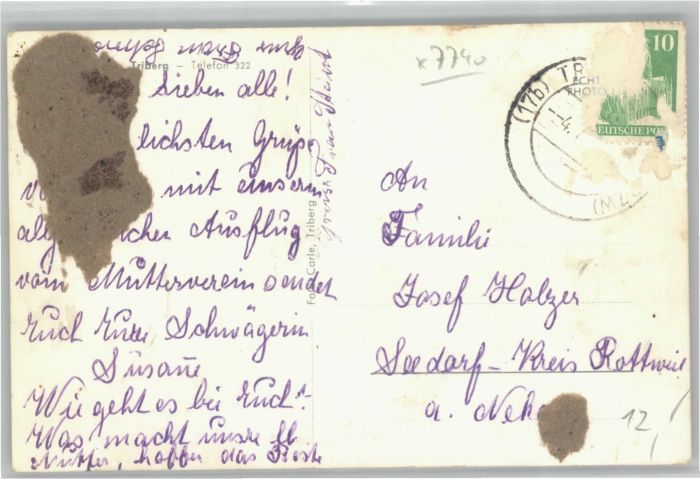 Triberg – Telefon 322
Lieben alle!
lichsten Grüs-
mit unserm
Ausflug
vom Mutterverein sendet
Euch Eure Schwägerin
Susane
Wie geht es bei Euch?
Was macht unsre lb
Mutter, hoffe das Beste
Foto Carle, Triberg
x 7740
(17b) TR
ECHT
PHOTO
10
EUTSCHE POS
An
Familie
Josef Holzer
Seedorf – Kreis Rottweil
a. Neck
12,